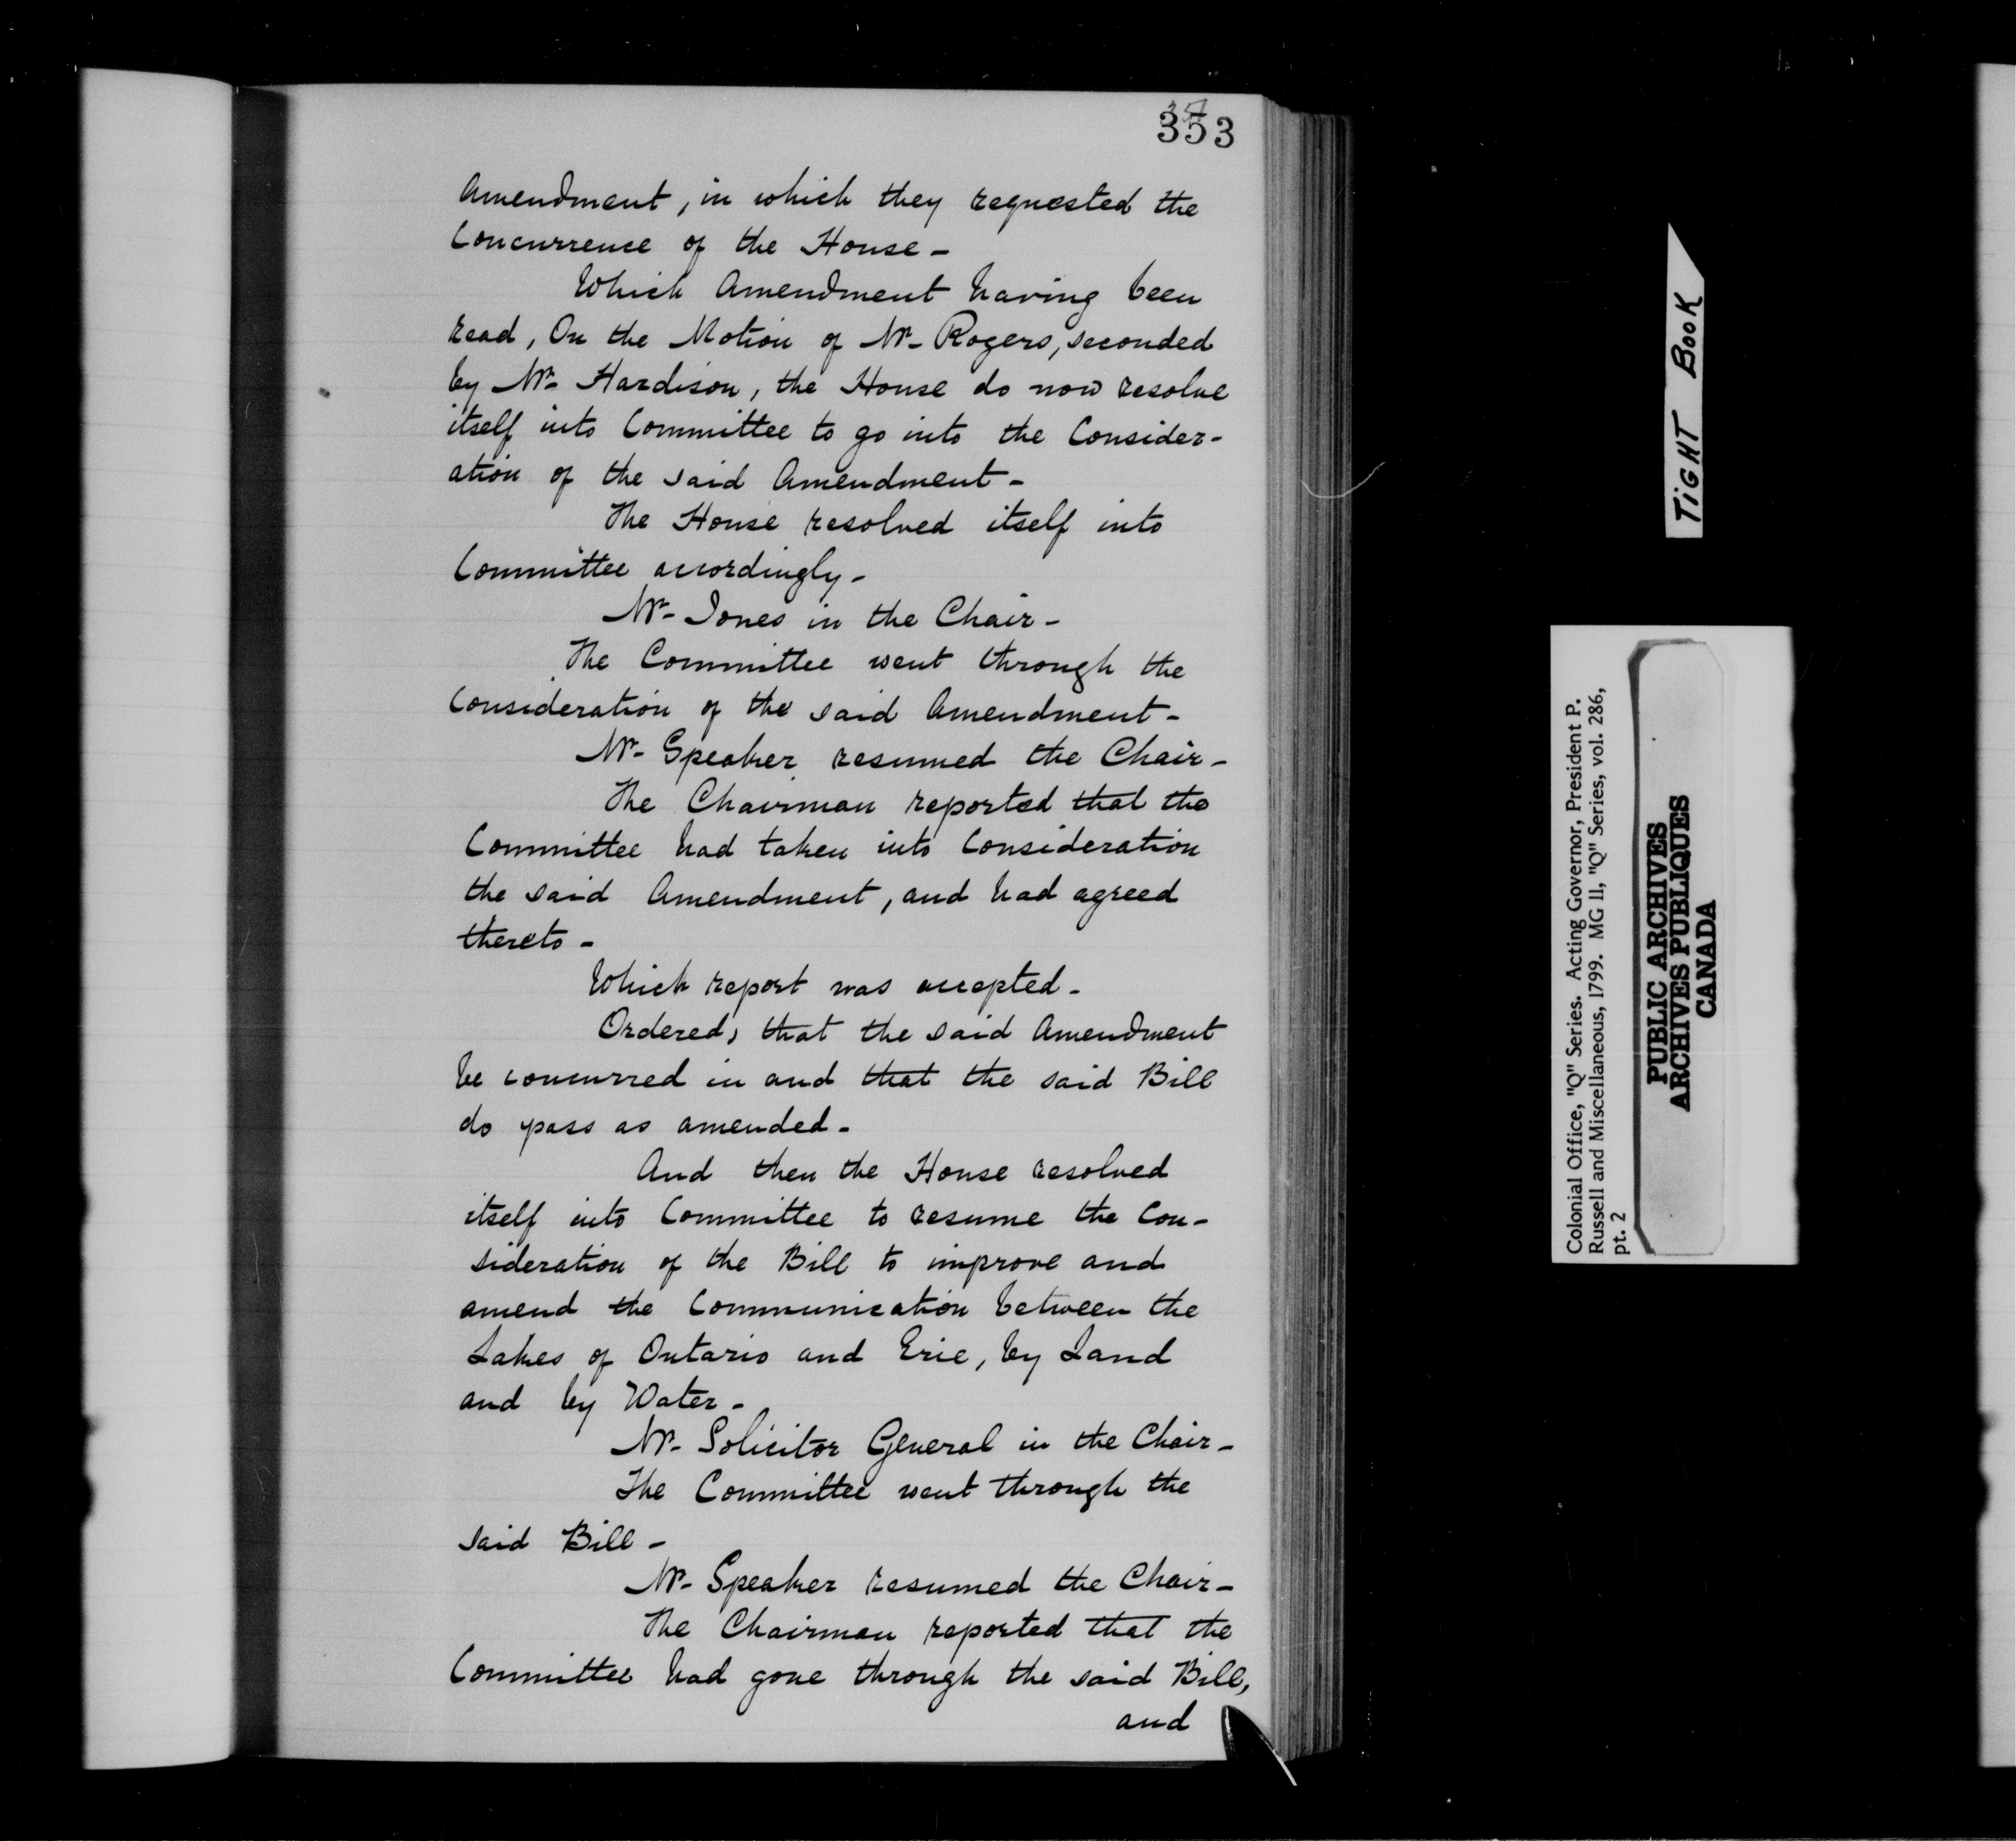 353
Amendment, in which they requested the
Concurrence of the House -
Which Amendment having been
read, On the Motion of Mr. Rogers, seconded
by Mr. Hardison, the House do now resolve
itself into Committee to go into the Consider-
ation of the said Amendment -
The House resolved itself into
Committee accordingly -
Mr. Jones in the Chair -
The Committee went through the
Consideration of the said Amendment -
Mr. Speaker resumed the Chair -
The Chairman reported that the
Committee had taken into Consideration
the said Amendment, and had agreed
thereto -
Which report was accepted -
Ordered, that the said Amendment
be concurred in and that the said Bill
do pass as amended -
And then the House resolved
itself into Committee to resume the Con-
sideration of the Bill to improve and
amend the Communication between the
Lakes of Ontario and Erie, by Land
and by Water -
Mr. Solicitor General in the Chair -
The Committee went through the
said Bill -
Mr. Speaker resumed the Chair -
The Chairman reported that the
Committee had gone through the said Bill,
and
TIGHT BOOK
Colonial Office, "Q" Series. Acting Governor, President P.
Russell and Miscellaneous, 1799. MG 11, "Q" Series, vol. 286,
pt. 2
PUBLIC ARCHIVES
ARCHIVES PUBLIQUES
CANADA